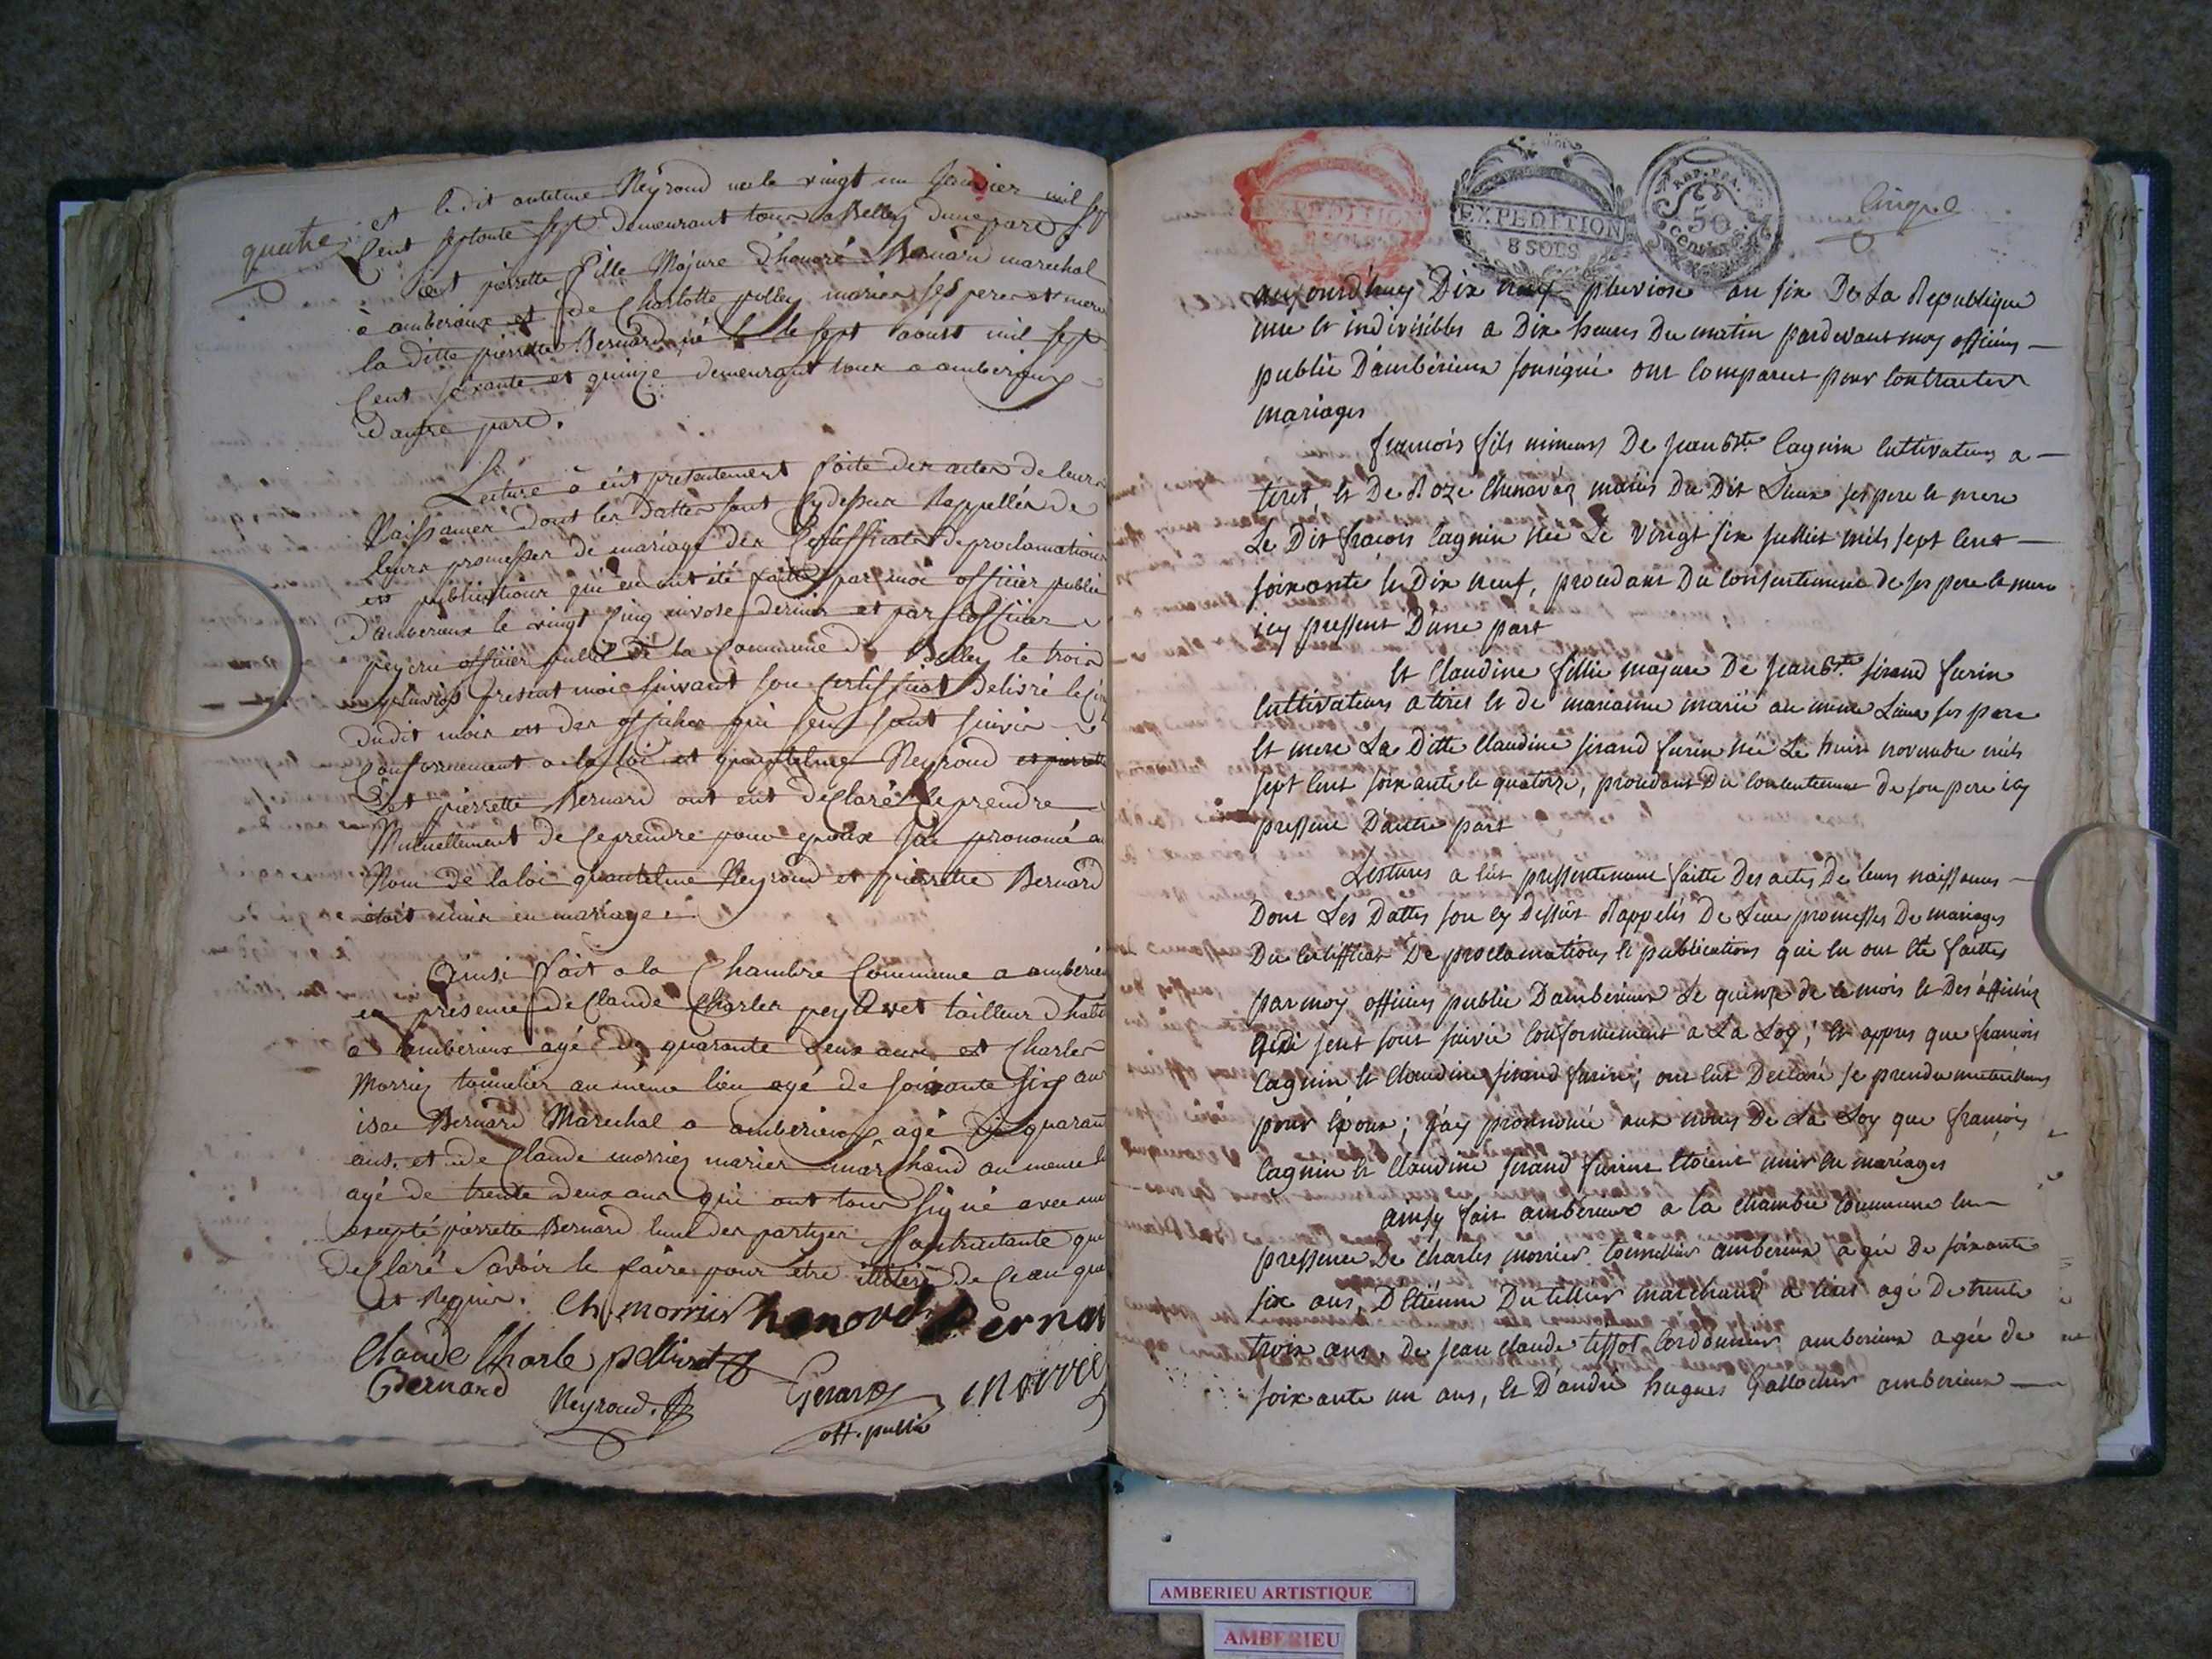 quatre
et le dit antelme Neyroud né le vingt un Janvier mil sept
Cent septante sept demeurant tous a Belley dune part
et pierrette fille Majure d'honoré Bernard marechal
à amberieux et de Charlotte polley mariés ses pere et mere
la ditte pierrette Bernard né le sept aoust mil sept
Cent soixante et quinze demeurant tous a amberieux
d'autre part.
Lecture à eut presentement faite des actes de leurs
Naissances dont les dattes sont Cydessus Rappellés de
leurs promesses de mariage des Certifficats de proclamations
et publications qui en ont été faittes par moi officier public
d'amberieux le vingt Cinq nivose dernier et par
officier public de la Commune de Belley le trois
pluviose present mois suivant son Certifficat delivré le
dudit mois et des affiches qui sen sont suivis
Conformement a la loi et qu'antelme Neyroud et pierrette
et pierrette Bernard ont eut déClaré Se prendre
Mutuellement de Ce prendre pour epoux J'ai prononcé au
Nom de la loi quantelme Neyroud et pierrette Bernard
étoit unis en mariage.
Ainsi fait a la Chambre Commune a amberieu
en présence de Claude Charles peytavet tailleur d'habit
a amberieux agé de quarante deux ans et Charles
Morrier tonnelier au même lieu agé de soixante six ans
Bernard Marechal a amberieux agé de quarante
ans. et de Claude morrier marchand au meme
agé de trente deux ans qui ont tous signé avec
excepté pierrette Bernard lune des parties Contractante qui
déClaré Savoir le faire pour être illiteré de Ce
et Requis.
Ch. morrier honoré Bernar
Claude Charle pettivet
Bernard Neyroud. Girard
off. public
EXPEDITION
8 SOLS
EXPEDITION
8 SOLS
REP. FRA.
50
CENTIMES
Cinq.e
aujourd'huy Dix neuf pluviose an six De La Republique
une et indivisibles a Dix heures Du matin pardevant moy officiers
public D'ambérieux sousigné ont Comparut pour Contracter
mariages
francois fils mineurs De jean Bte Cagnin Cultivateurs a
tiret, et De Roze Chenavaz mariés Du Dit Lieux ses pere et mere
Le Dit fracois Cagnin Née Le Vingt six juilliet mils sept Cent
soixante et Dix neuf, procedant Du Consentement de ses pere et mere
icy pressent D'une part
Et Claudine fillie majure De jean Bte sirand furin
Cultivateurs a tiret et de marianne marié au même Lieux ses pere
et mere La Ditte Claudine sirand furin née Le huit novembre mils
sept Cent soixante et quatorze, procedant Du Contentement de son pere icy
pressent D'autre part
Lectures a eut pressentement faitte Des actes De leurs naissances
Dont Les Dattes son cy Dessus Rappelés De Leur promesses De mariages
Du Certifficat De proclamations et publications qui en ont eté faittes
par moy officiers public D'amberieux Le quinze de ce mois et Des affiches
qui sent sont suivie Conformement a La Loy; et appres que francois
Cagnin et Claudine sirand furin; ont eut Declaré se prendre mutuellement
pour Epoux; j'ay prononcée aux noms De La Loy que francois
Cagnin et Claudine sirand furin Etoient unis en mariages
ainsy fait amberieux a la chambre Commune en
pressence De Charles morrier tonnellier amberieux agée De soixante
six ans, D'Etienne Dutillier marchand a tiret agé De trente
trois ans, de jean Claude tissot Cordonnier amberieux agée de
soixante un ans, et D'andré hugues Gallochet amberieux
AMBERIEU ARTISTIQUE
AMBERIEU